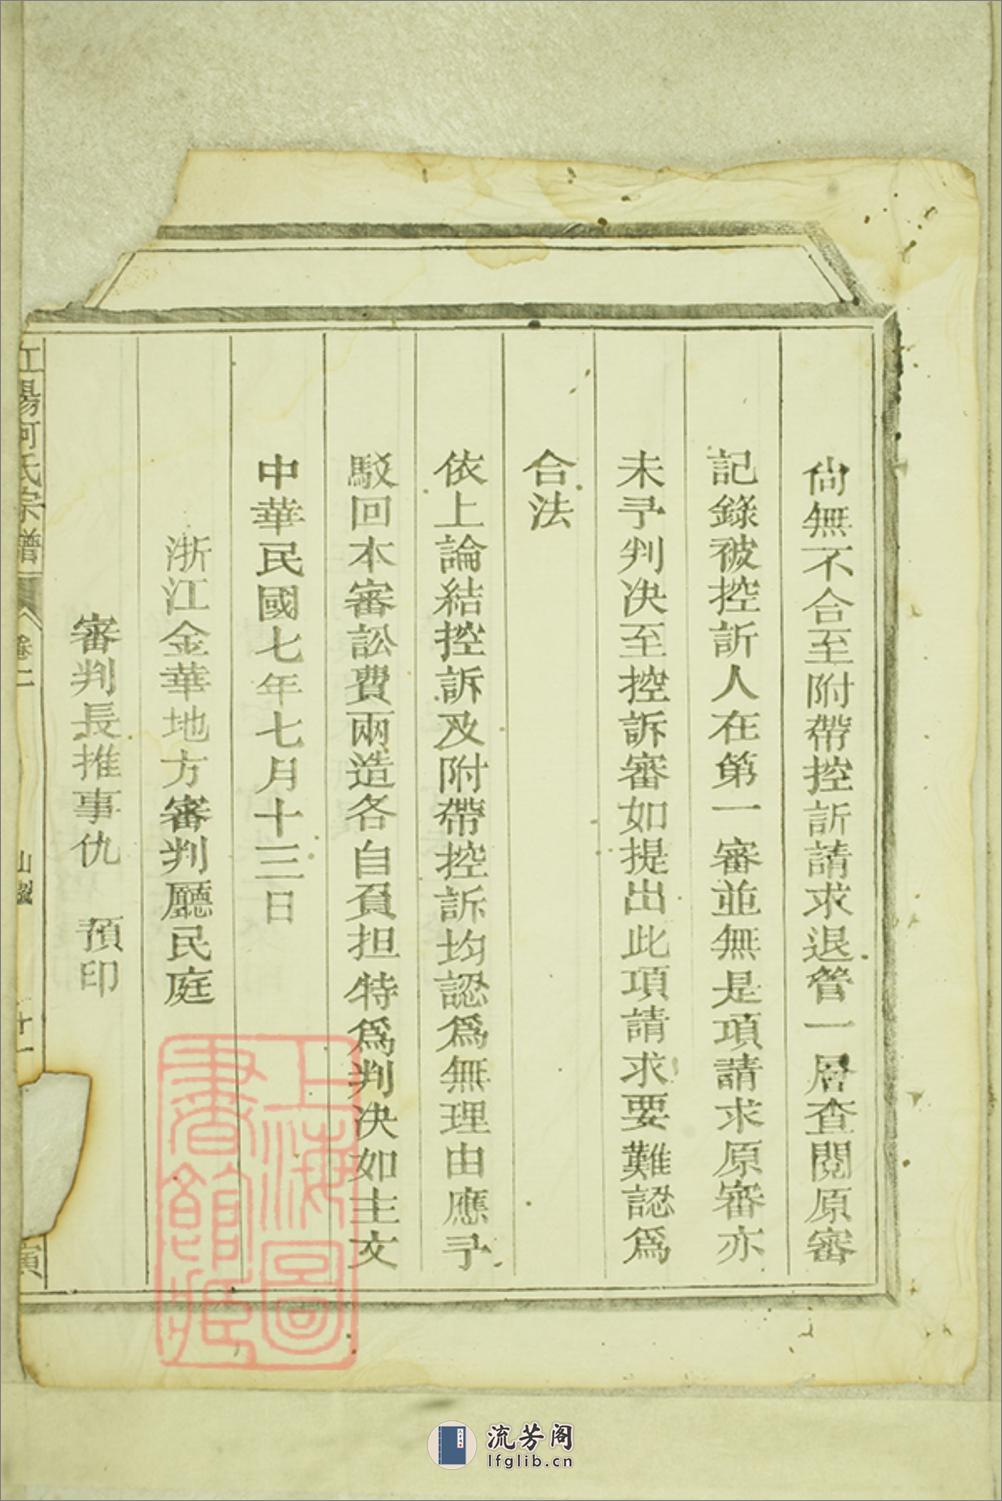 尙無不合至附帶控訴請求退管一層查閱原審
記錄被控訴人在第一審並無是項請求原審亦
未予判决至控訴審如提出此項請求要難認爲
合法
依上論結控訴及附帶控訴均認爲無理由應予
駁回本審訟費兩造各自負担特爲判决如主文
中華民國七年七月十三日
浙江金華地方審判廳民庭
審判長推事仇 預印
江陽何氏宗譜
卷二
十一
上海圖書館藏
流芳阁
lfglib.cn